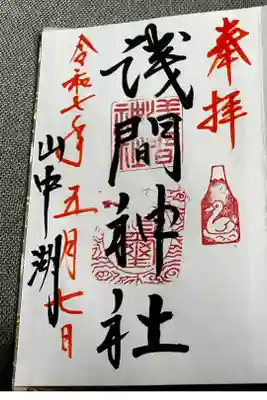 奉拝
淺間神社
令和七年五月七日
山中湖